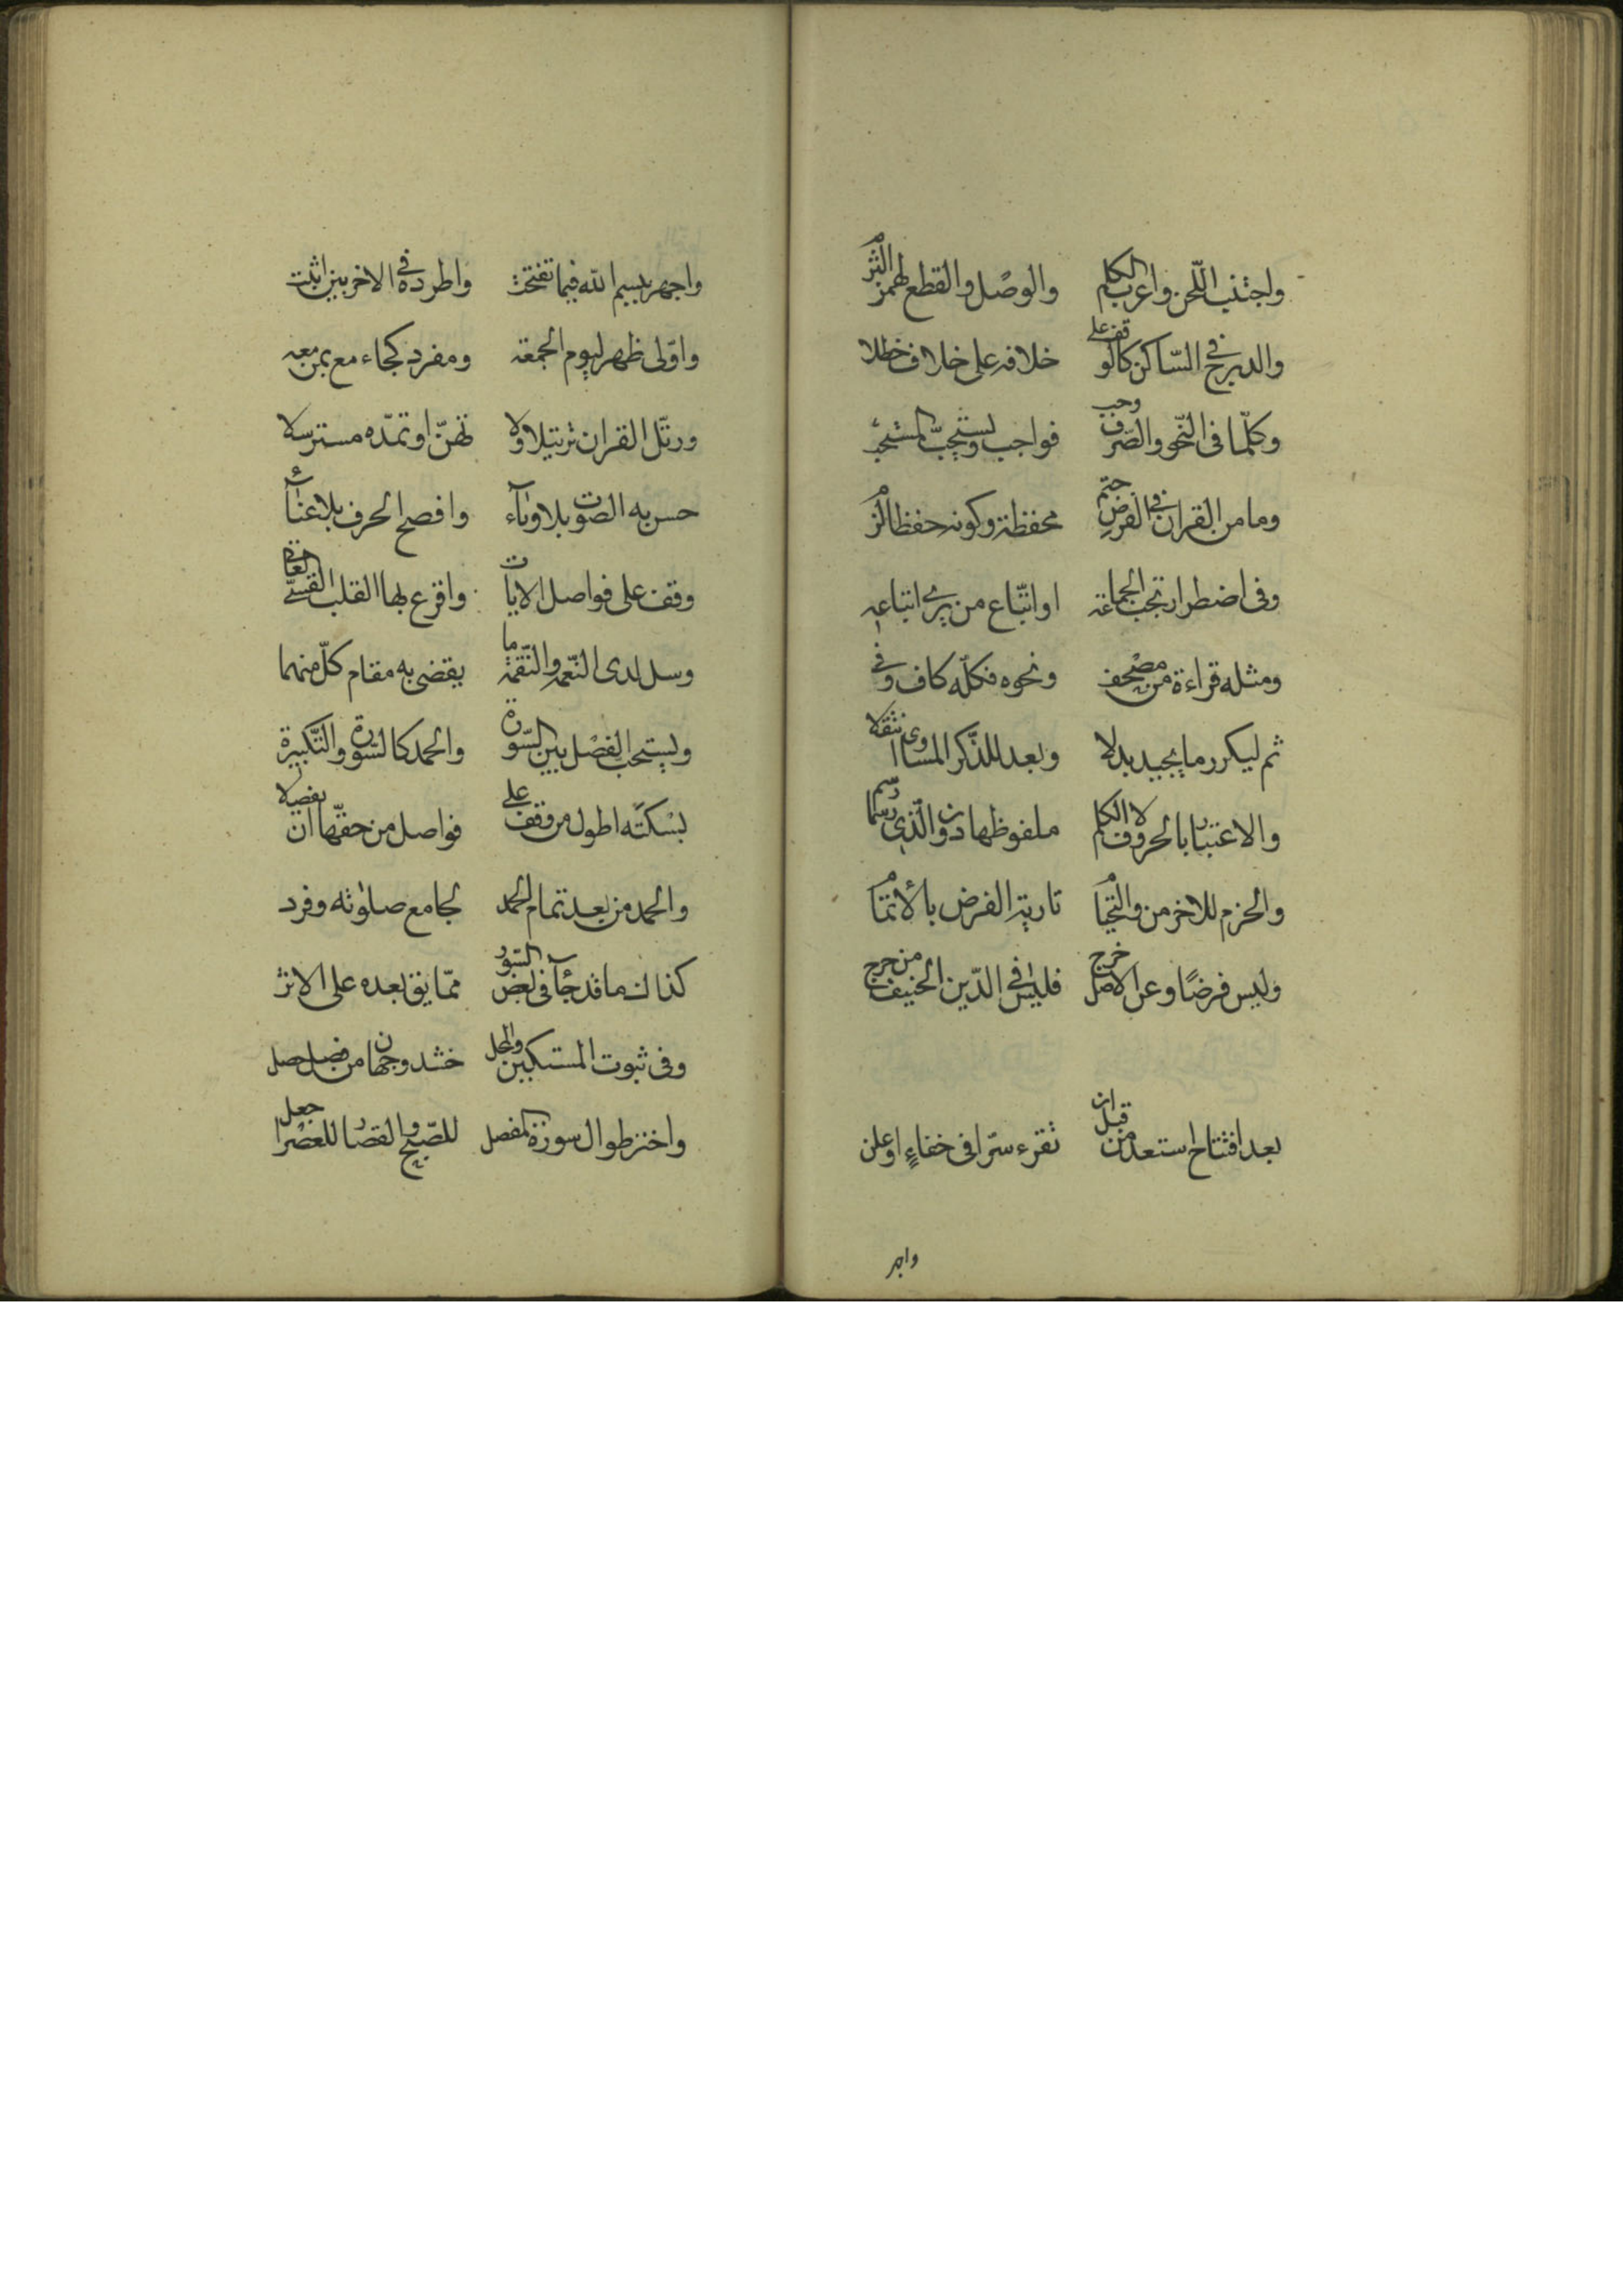 واجتنب اللّحن واعرب الكلم والوصل والقطع لهمز التزم
والدرج في السّاكن كالوقف على خلافه على خلاف خطلا
وكلّما في النّحو والصّرف وجب فواجب ويستحبّ المستحب
وما من القران في الفرض حتم محفظة وكونه حفظا لزم
وفي اضطرار تجب الجماعة او اتّباع من يرى اتباعه
ومثله قراءة من مصحف ونحوه فكلّه كاف وفي
ثم ليكرر ما يجيد بدلا وبعد للذّكر المساوي انتقلا
والاعتبار بالحروف لا الكلم ملفوظها دون الّذي رسما رسم
والحزم للاخر من والتجا تارية الفرض بالاتمام
وليس فرضًا وعن الاصل خرج فليس في الدّين الحنيف من حرج
بعد افتتاح استعذ من قبل ان تقرء سرّا في خفاءٍ او علن
واجهر
واجهر ببسم الله فيما تفتتحت واطرده في الاخريين اثبت
واوّلى ظهر ليوم الجمعة ومفرد كجاء مع بمن معه
ورتّل القران ترتيلا ولا تهنّ او تمدّه مسترسلا
حسن به الصوت بلا وناء وافصح الحرف بلا غناء
وقف على فواصل الايات واقرع بها القلب القسيّ العات
وسل لدى النّعمة والنّقمة ما يقضي به مقام كلّ منهما
ويستحب الفصل بين السّورة والحمد كالسّورة والتّكبيرة
بسكتة اطول من وقف على فواصل من حقّها ان يفصلا
والحمد من بعد تمام الحمد لجامع صلوته وفرد
كذاك ما قد جاء في بعض السّور ممّا يق بعده على الاثر
وفي ثبوت المستكين والمحل خشد وجهان من فصل حصل
واختر طوال سورة المفصل للصّبح والقصار للعصر اجعل